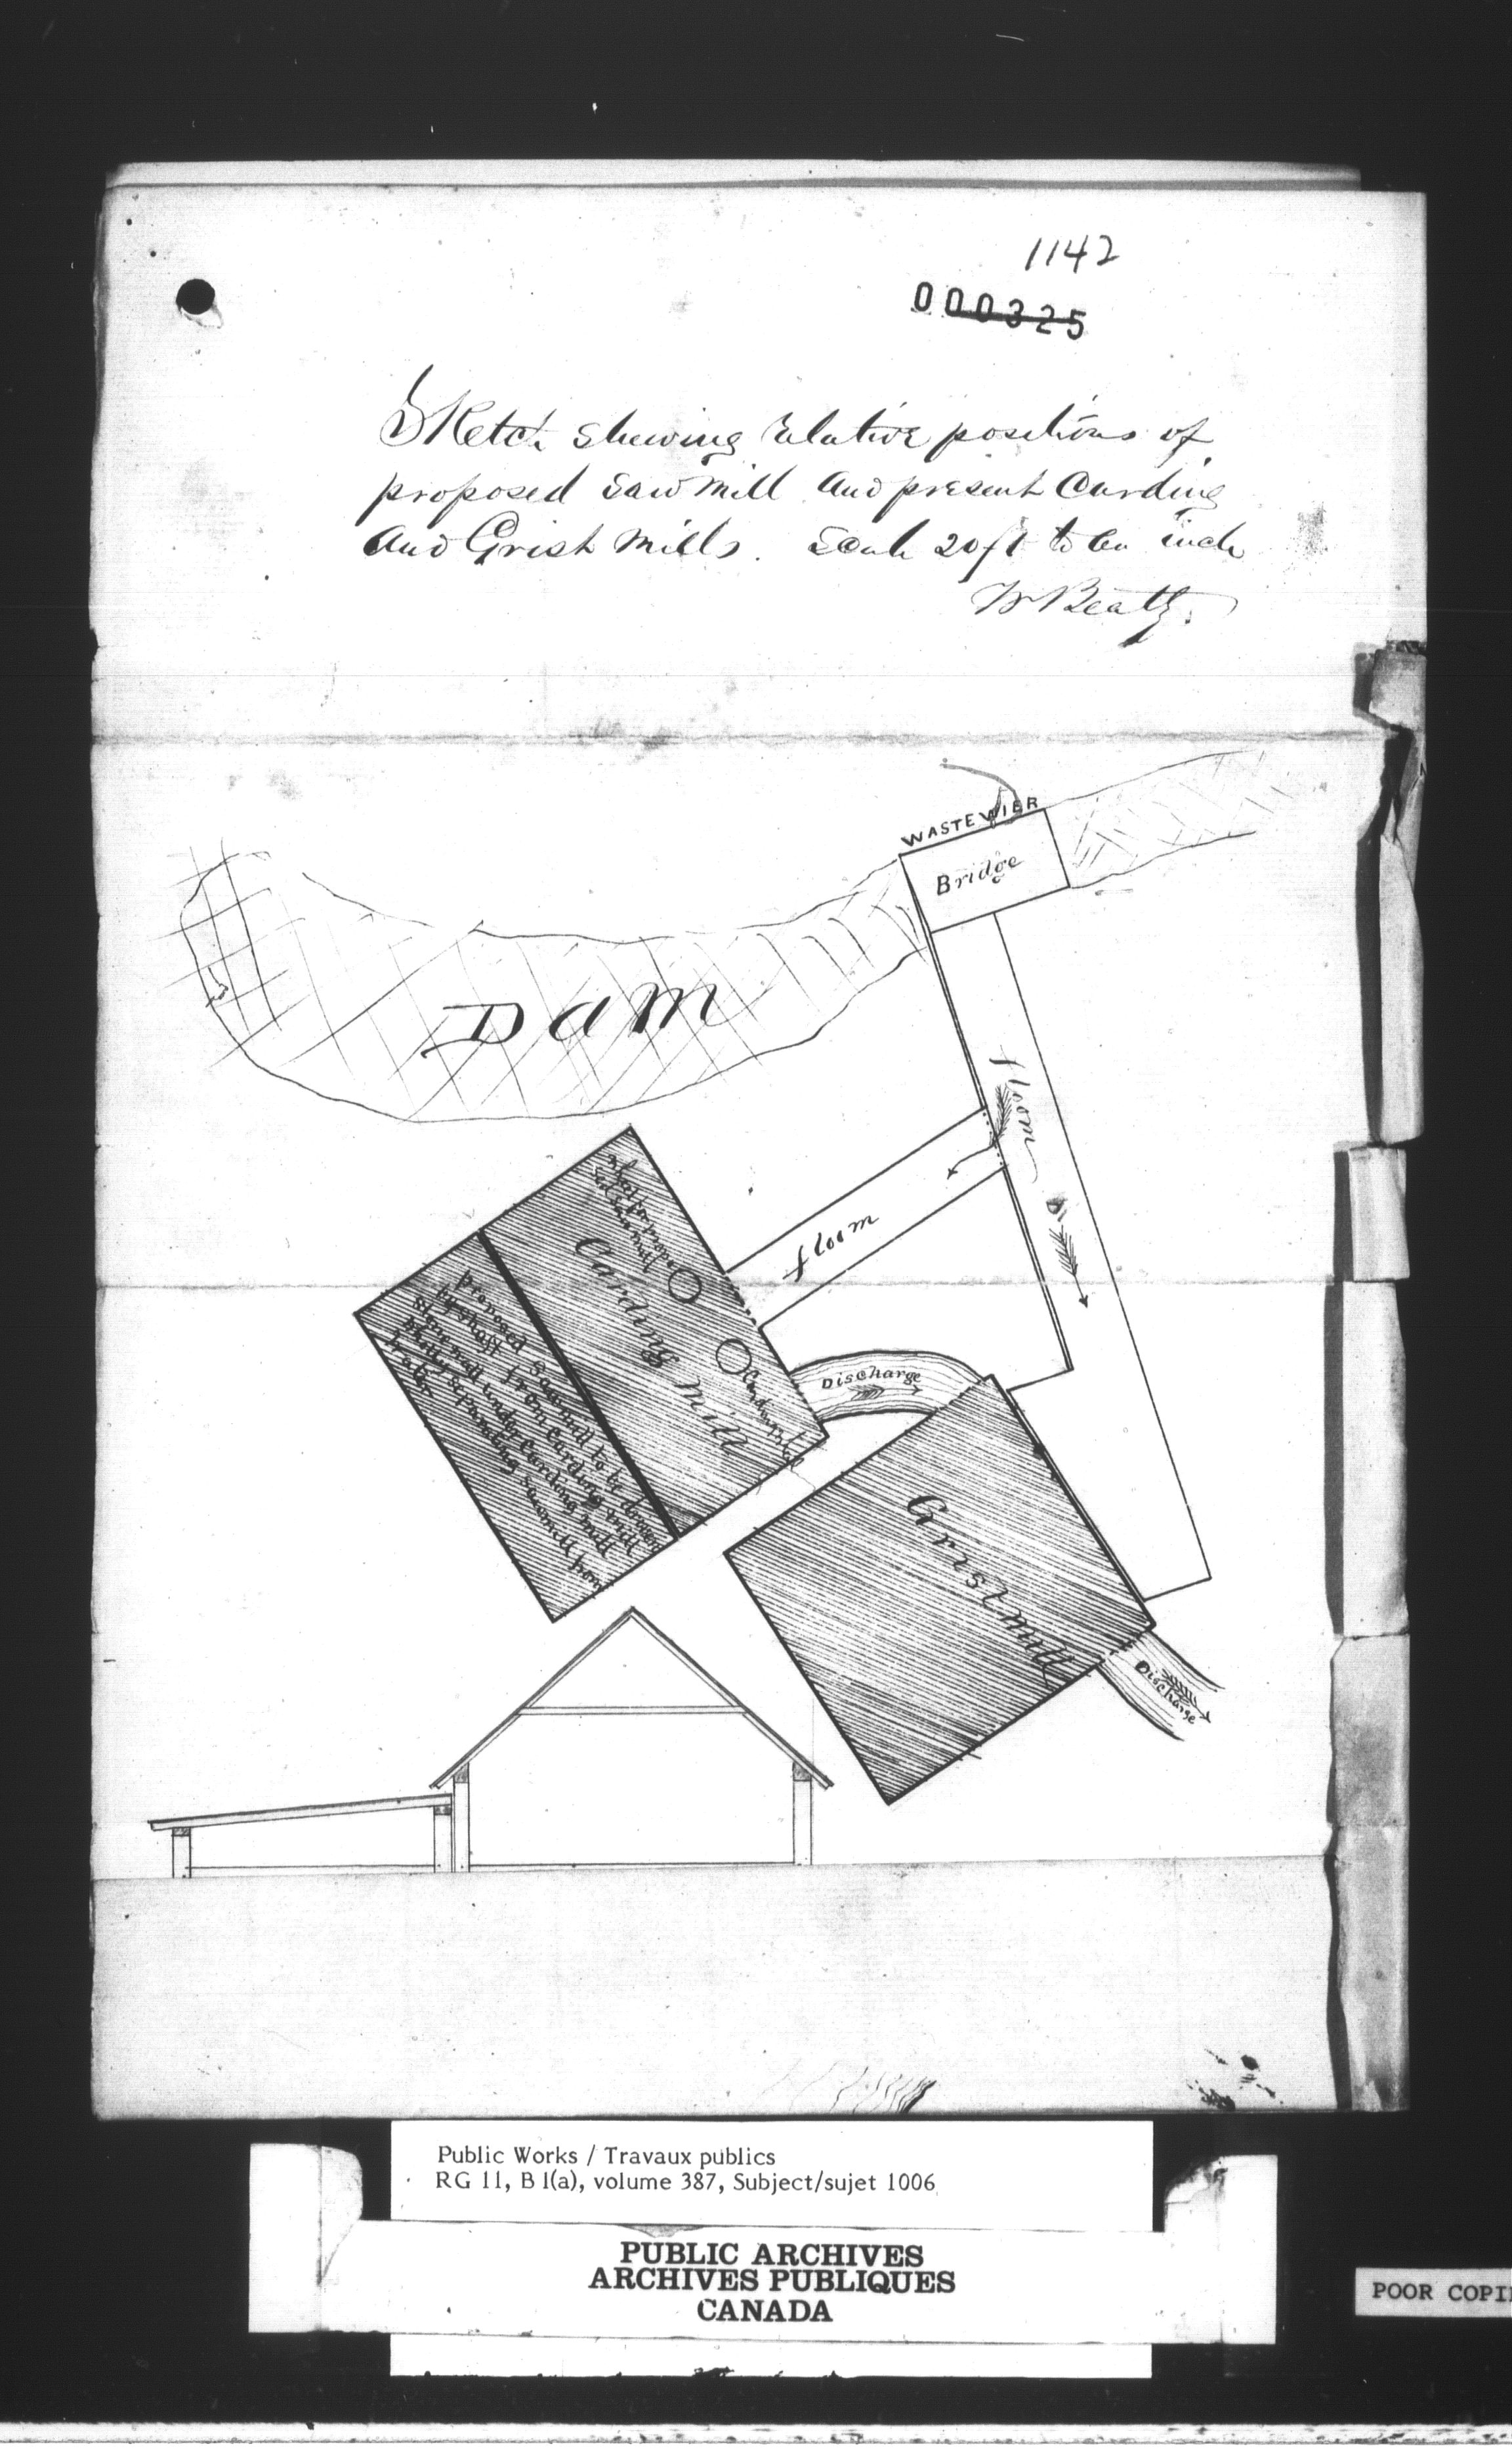 1142
000325
Sketch shewing relative positions of
proposed Saw mill and present Carding
and Grist Mills. Scale 20ft to an inch
W Beatty.
WASTEWIER
Bridge
Dam
floom
floom
Wheel to propel
Sawmill
Carding Mill
Carding
Proposed Sawmill to be driven
by shaft from Carding mill
Stone wall under Carding mill
wholly separating Sawmill from
Water
Discharge
Gristmill
Discharge
Public Works / Travaux publics
RG 11, B 1(a), volume 387, Subject/sujet 1006
PUBLIC ARCHIVES
ARCHIVES PUBLIQUES
CANADA
POOR COPI